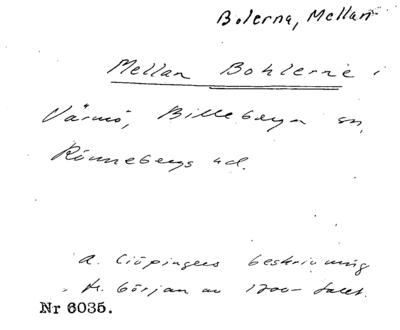 Bolerna, Mellan
Mellan Bohlerne i
Värmö, Billeberga sn,
Rönnebergs hd.
A. Ciöpingers beskrivning
fr. början av 1700-talet.
Nr 6035.